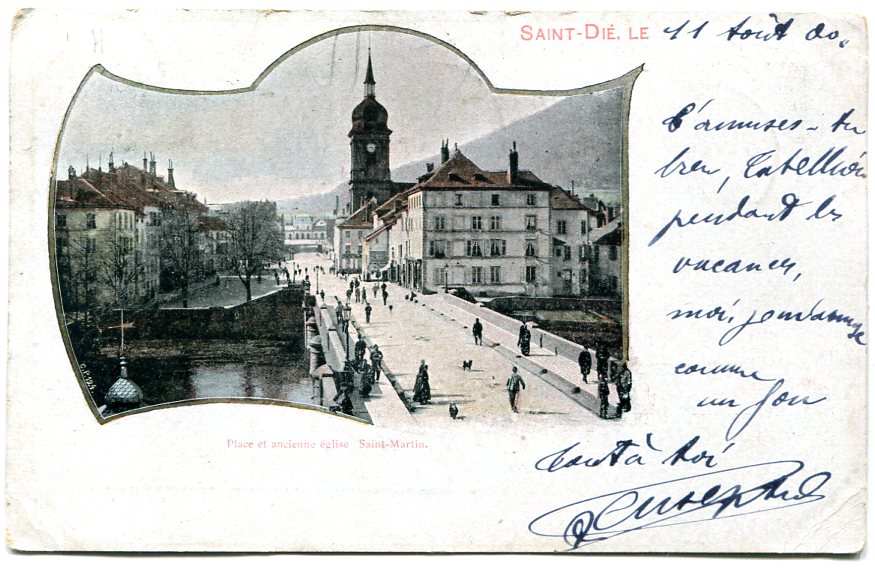 SAINT-DIÉ, LE 11 Août 00.
T'amuses-tu
bien, Tabellion
pendant les
vacances,
moi, 
comme
un fou
Tout à toi
Place et ancienne église Saint-Martin.